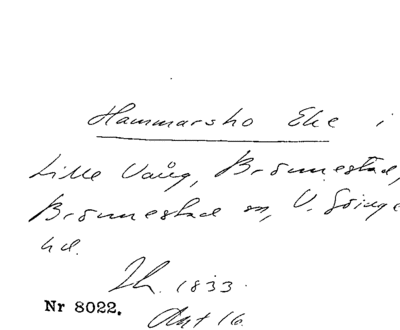 Hammarsho Eke i
Lille Vång, Brönnestad,
Brönnestad sn, V. Göinge
hd.
Th. 1833.
Nr 8022.
Ant 16.